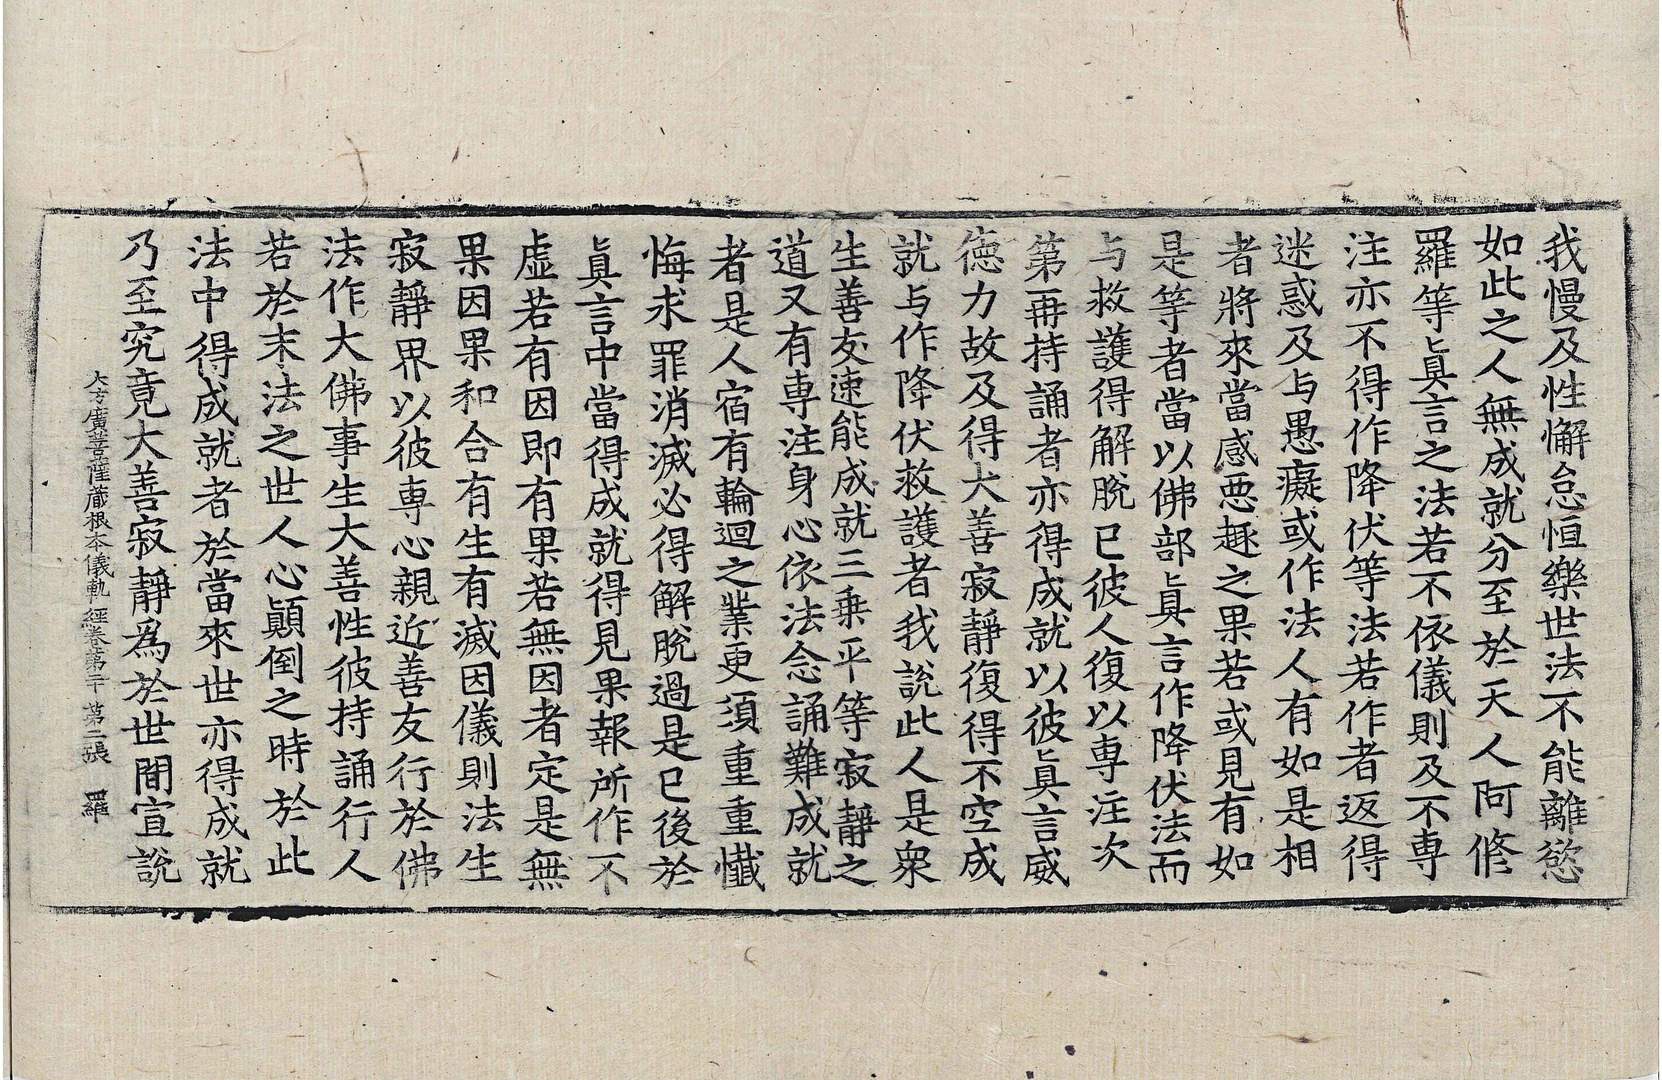 我慢及性懈怠恒樂世法不能離慾
如此之人無成就分至於天人阿修
羅等眞言之法若不依儀則及不專
注亦不得作降伏等法若作者返得
迷惑及与愚癡或作法人有如是相
者將來當感惡趣之果若或見有如
是等者當以佛部眞言作降伏法而
与救護得解脫已彼人復以專注次
第再持誦者亦得成就以彼眞言威
德力故及得大善寂靜復得不空成
就与作降伏救護者我說此人是衆
生善友速能成就三乘平等寂靜之
道又有專注身心依法念誦難成就
者是人宿有輪迴之業更須重重懺
悔求罪消滅必得解脫過是已後於
眞言中當得成就得見果報所作不
虛若有因即有果若無因者定是無
果因果和合有生有滅因儀則法生
寂靜界以彼專心親近善友行於佛
法作大佛事生大善性彼持誦行人
若於末法之世人心顚倒之時於此
法中得成就者於當來世亦得成就
乃至究竟大善寂靜爲於世間宣說
大方廣菩薩藏根本儀軌經卷第二十 第二張 羅